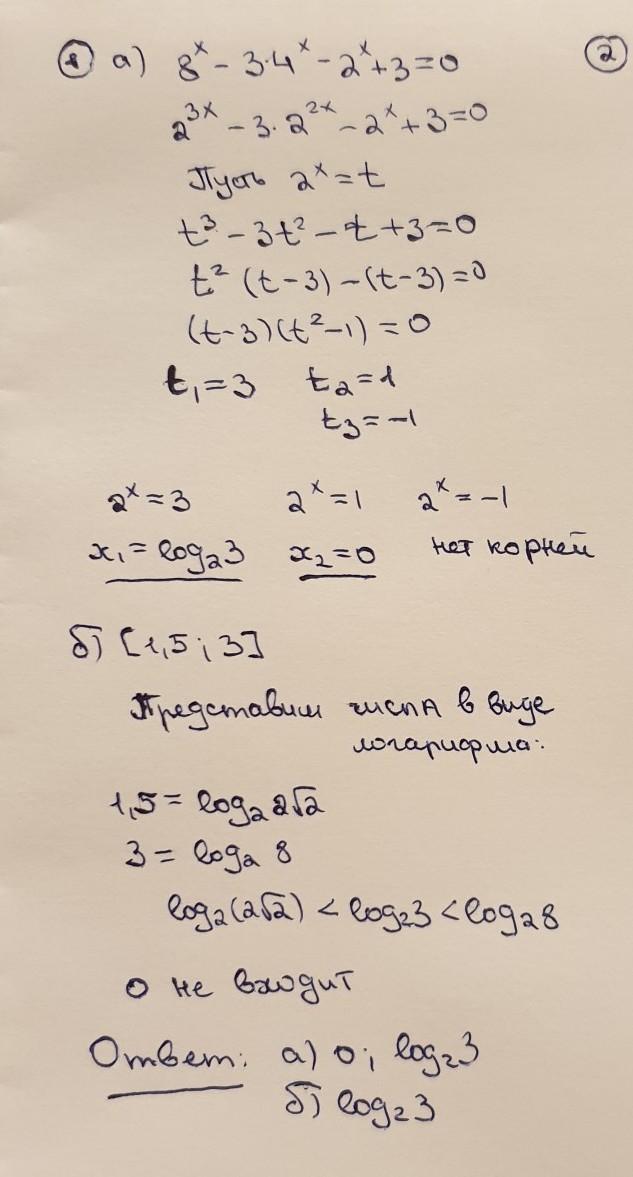 ① а) 8ˣ - 3·4ˣ - 2ˣ + 3 = 0 ②
2³ˣ - 3·2²ˣ - 2ˣ + 3 = 0
Пусть 2ˣ = t
t³ - 3t² - t + 3 = 0
t² (t - 3) - (t - 3) = 0
(t - 3)(t² - 1) = 0
t₁ = 3 t₂ = 1
t₃ = -1
2ˣ = 3 2ˣ = 1 2ˣ = -1
x₁ = log₂3 x₂ = 0 нет корней
б) [1,5; 3]
Представим числа в виде
логарифма:
1,5 = log₂ 2√2
3 = log₂ 8
log₂(2√2) < log₂3 < log₂8
0 не входит
Ответ: а) 0; log₂3
б) log₂3